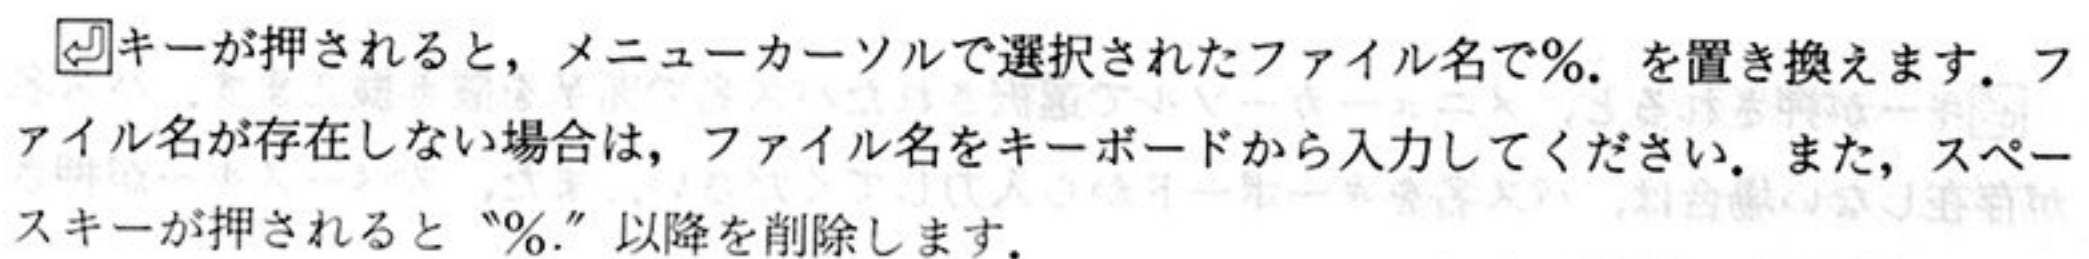 ⏎キーが押されると，メニューカーソルで選択されたファイル名で%．を置き換えます．フ
ァイル名が存在しない場合は，ファイル名をキーボードから入力してください．また，スペー
スキーが押されると〝%.〞以降を削除します．